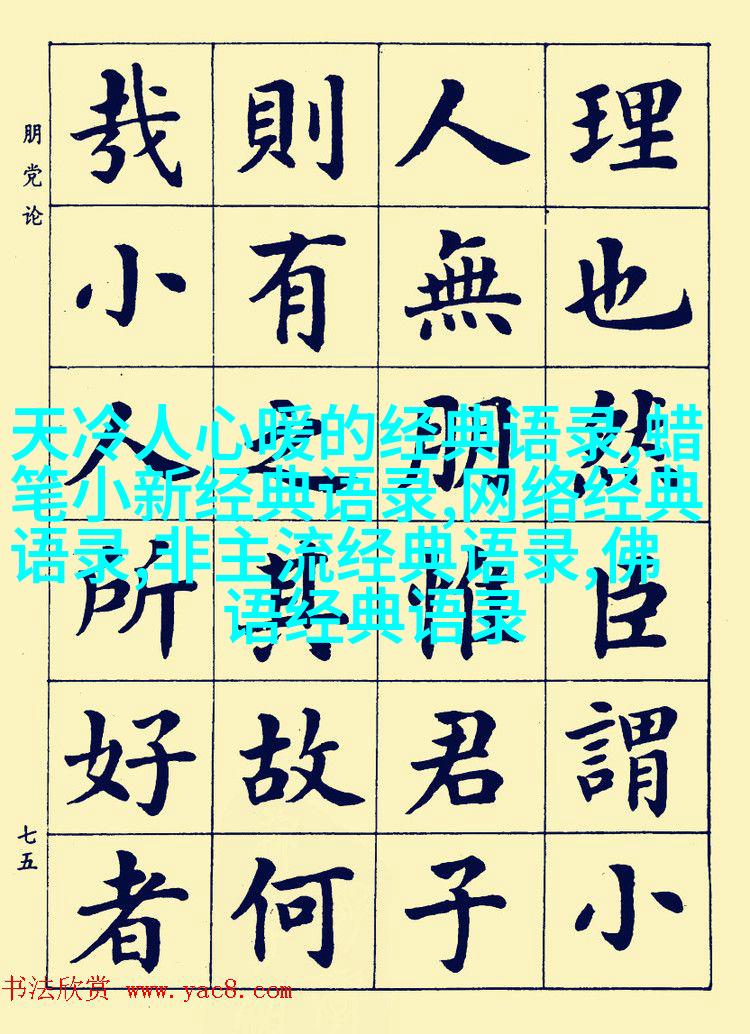 理也然臣謂小
人無朋惟君子
則有之其故何
哉小人所好者
朋党论
七五
天冷人心暖的经典语录,蜡
笔小新经典语录,网络经典
语录,非主流经典语录,佛
语经典语录
书法欣赏 www.yac8.com